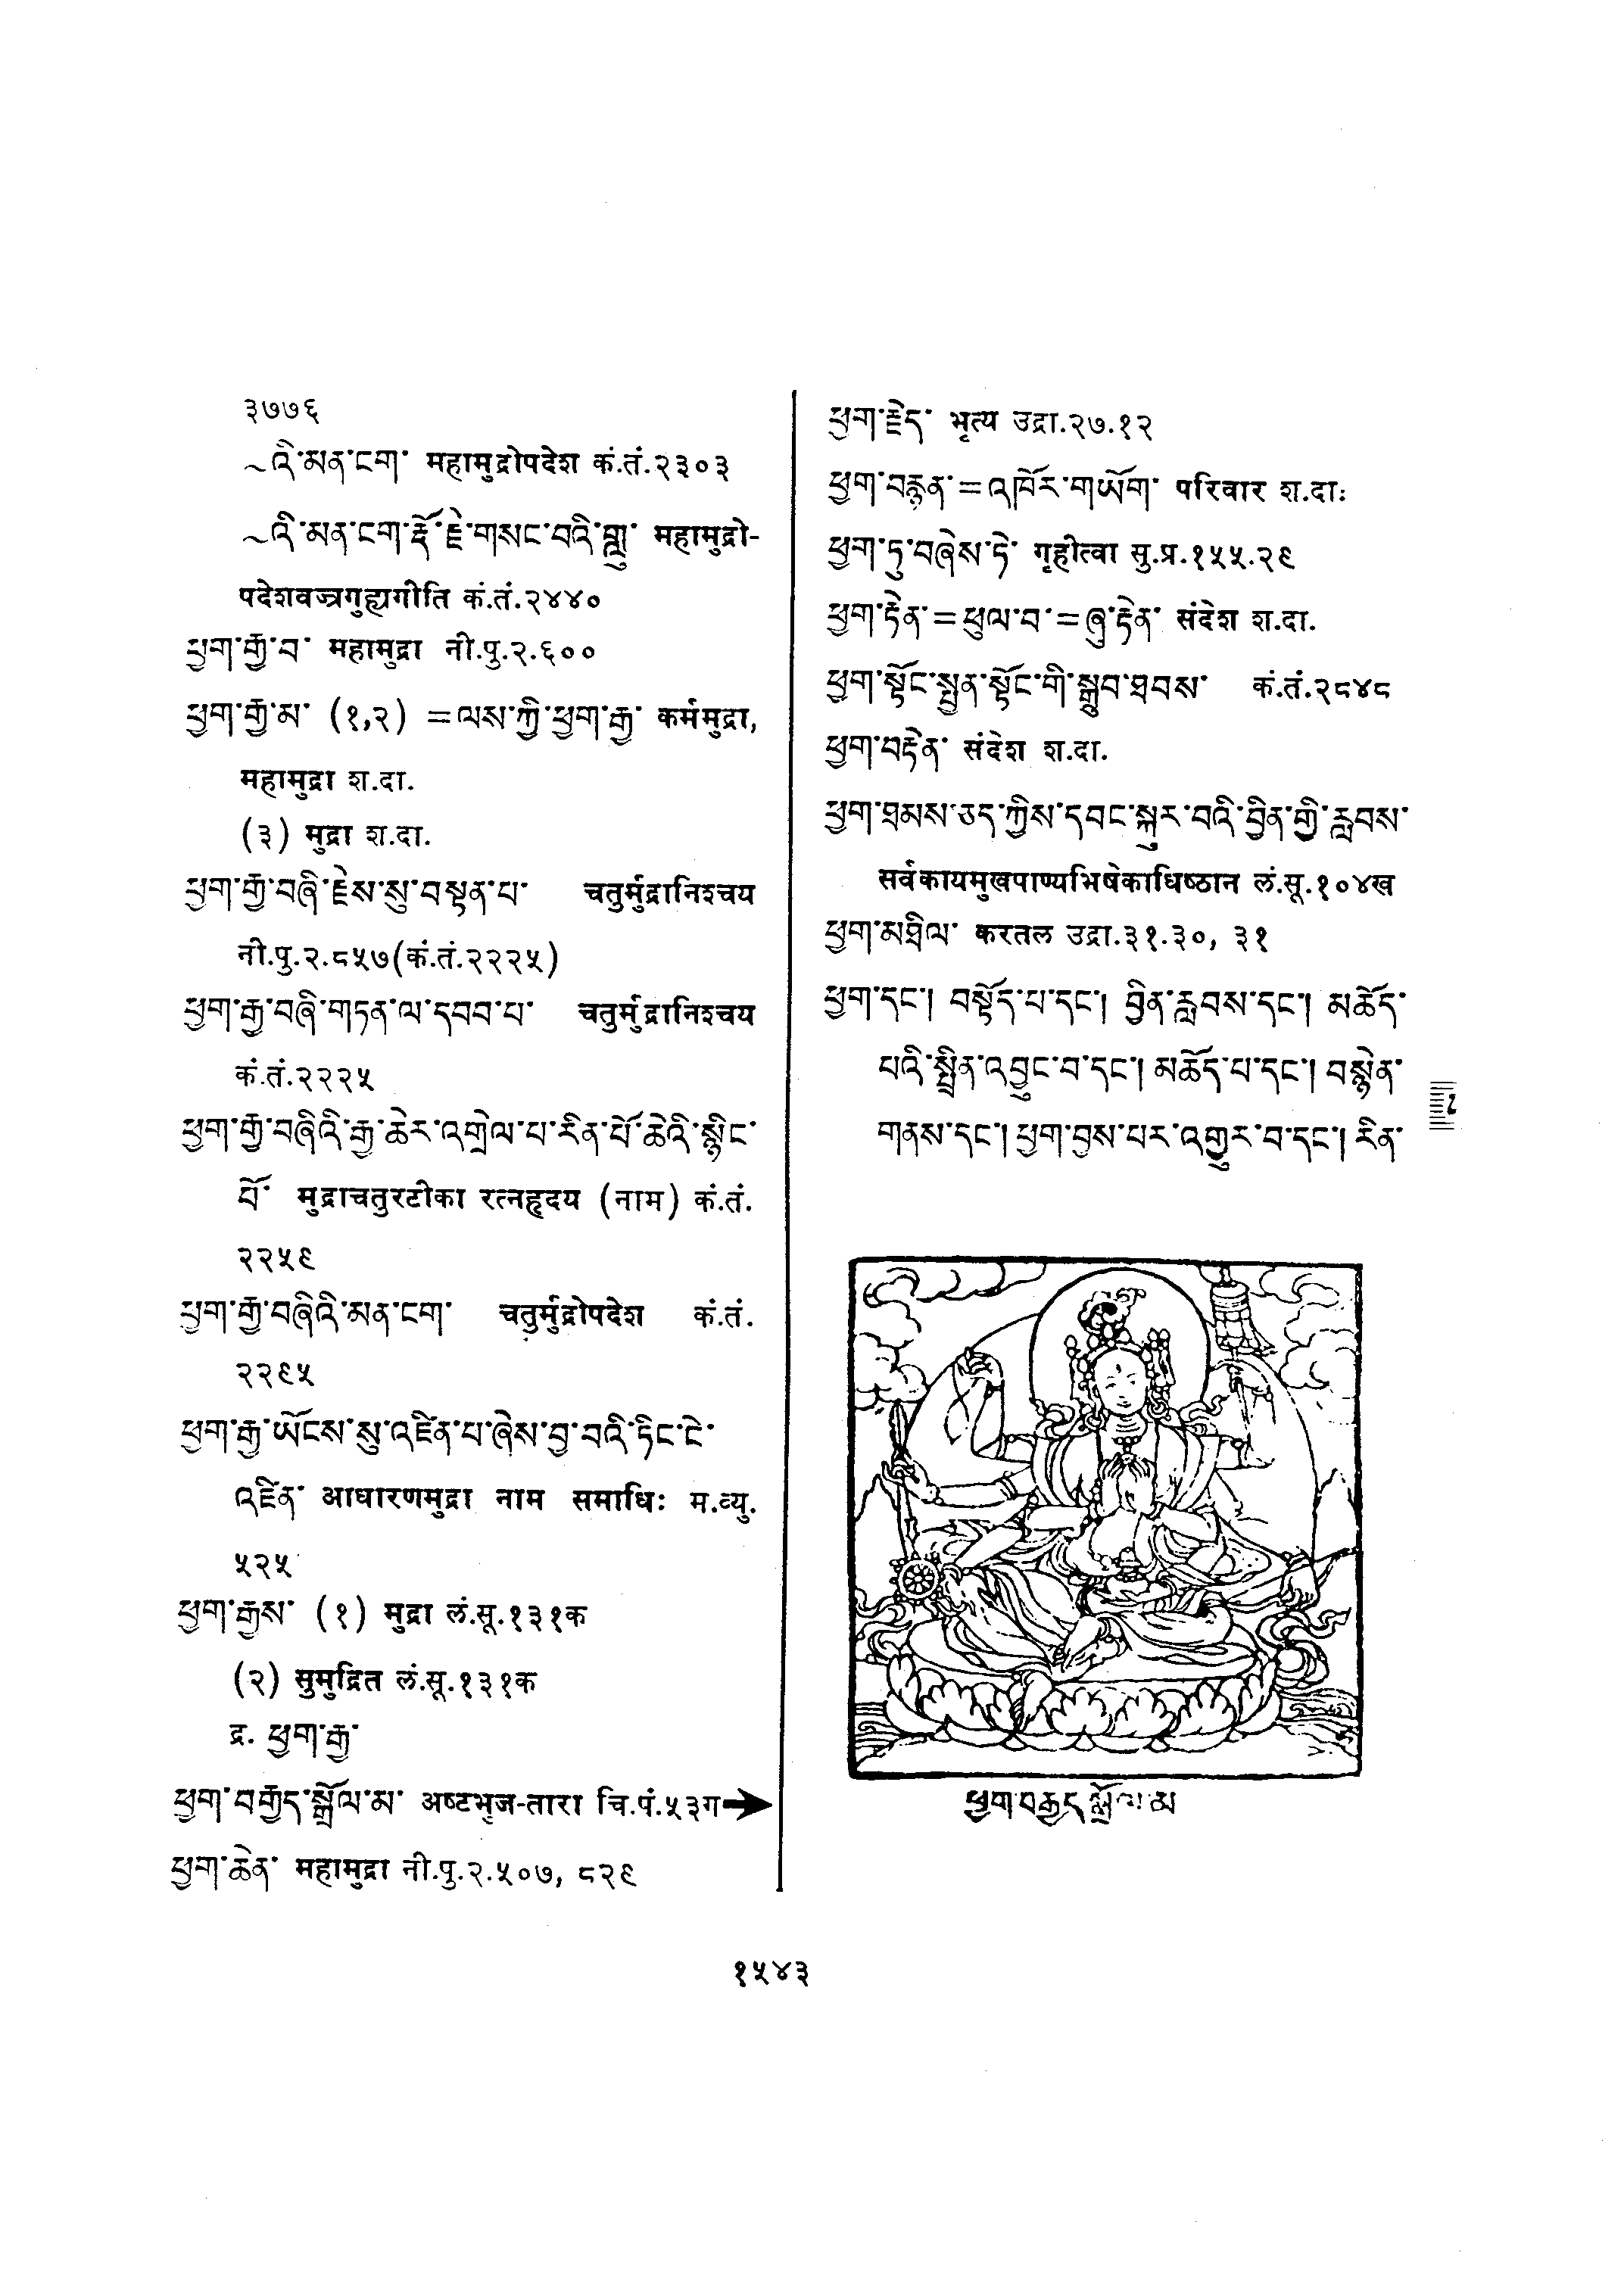 ३७७६
~འི་མན་ངག་ महामुद्रोपदेश कं.तं.२३०३
~འི་མན་ངག་རྡོ་རྗེ་གསང་བའི་གླུ་ महामुद्रो-
पदेशवज्रगुह्यगीति कं.तं.२४४०
ཕྱག་རྒྱ་བ་ महामुद्रा नी.पु.२.६००
ཕྱག་རྒྱ་མ་ (१,२) =ལས་ཀྱི་ཕྱག་རྒྱ་ कर्ममुद्रा,
महामुद्रा श.दा.
(३) मुद्रा श.दा.
ཕྱག་རྒྱ་བཞི་རྗེས་སུ་བསྟན་པ་ चतुर्मुद्रानिश्चय
नी.पु.२.८५७(कं.तं.२२२५)
ཕྱག་རྒྱ་བཞི་གཏན་ལ་དབབ་པ་ चतुर्मुद्रानिश्चय
कं.तं.२२२५
ཕྱག་རྒྱ་བཞིའི་རྒྱ་ཆེར་འགྲེལ་པ་རིན་པོ་ཆེའི་སྙིང་
པོ་ मुद्राचतुरटीका रत्नहृदय (नाम) कं.तं.
२२५९
ཕྱག་རྒྱ་བཞིའི་མན་ངག་ चतुर्मुद्रोपदेश कं.तं.
२२९५
ཕྱག་རྒྱ་ཡོངས་སུ་འཛིན་པ་ཞེས་བྱ་བའི་ཏིང་ངེ་
འཛིན་ आधारणमुद्रा नाम समाधिः म.व्यु.
५२५
ཕྱག་རྒྱས་ (१) मुद्रा लं.सू.१३१क
(२) सुमुद्रित लं.सू.१३१क
द्र. ཕྱག་རྒྱ་
ཕྱག་བརྒྱད་སྒྲོལ་མ་ अष्टभुज-तारा चि.पं.५३ग
ཕྱག་ཆེན་ महामुद्रा नी.पु.२.५०७, ८२९
ཕྱག་རྗེད་ भृत्य उद्रा.२७.१२
ཕྱག་བརྙན་=འཁོར་གཡོག་ परिवार श.दा.
ཕྱག་ཏུ་བཞེས་ཏེ་ गृहीत्वा सु.प्र.१५५.२९
ཕྱག་རྟེན་=ཕུལ་བ་=ཞུ་རྟེན་ संदेश श.दा.
ཕྱག་སྟོང་སྤྱན་སྟོང་གི་སྒྲུབ་ཐབས་ कं.तं.२८४८
ཕྱག་བརྟེན་ संदेश श.दा.
ཕྱག་ཐམས་ཅད་ཀྱིས་དབང་སྐུར་བའི་བྱིན་གྱི་རླབས་
सर्वकायमुखपाण्यभिषेकाधिष्ठान लं.सू.१०४ख
ཕྱག་མཐིལ་ करतल उद्रा.३१.३०, ३१
ཕྱག་དང་། བསྟོད་པ་དང་། བྱིན་རླབས་དང་། མཆོད་
པའི་སྤྲིན་འབྱུང་བ་དང་། མཆོད་པ་དང་། བསྙེན་
གནས་དང་། ཕྱག་བྱས་པར་འགྱུར་བ་དང་། རིན་
ཕྱག་བརྒྱད་སྒྲོལ་མ
१५४३